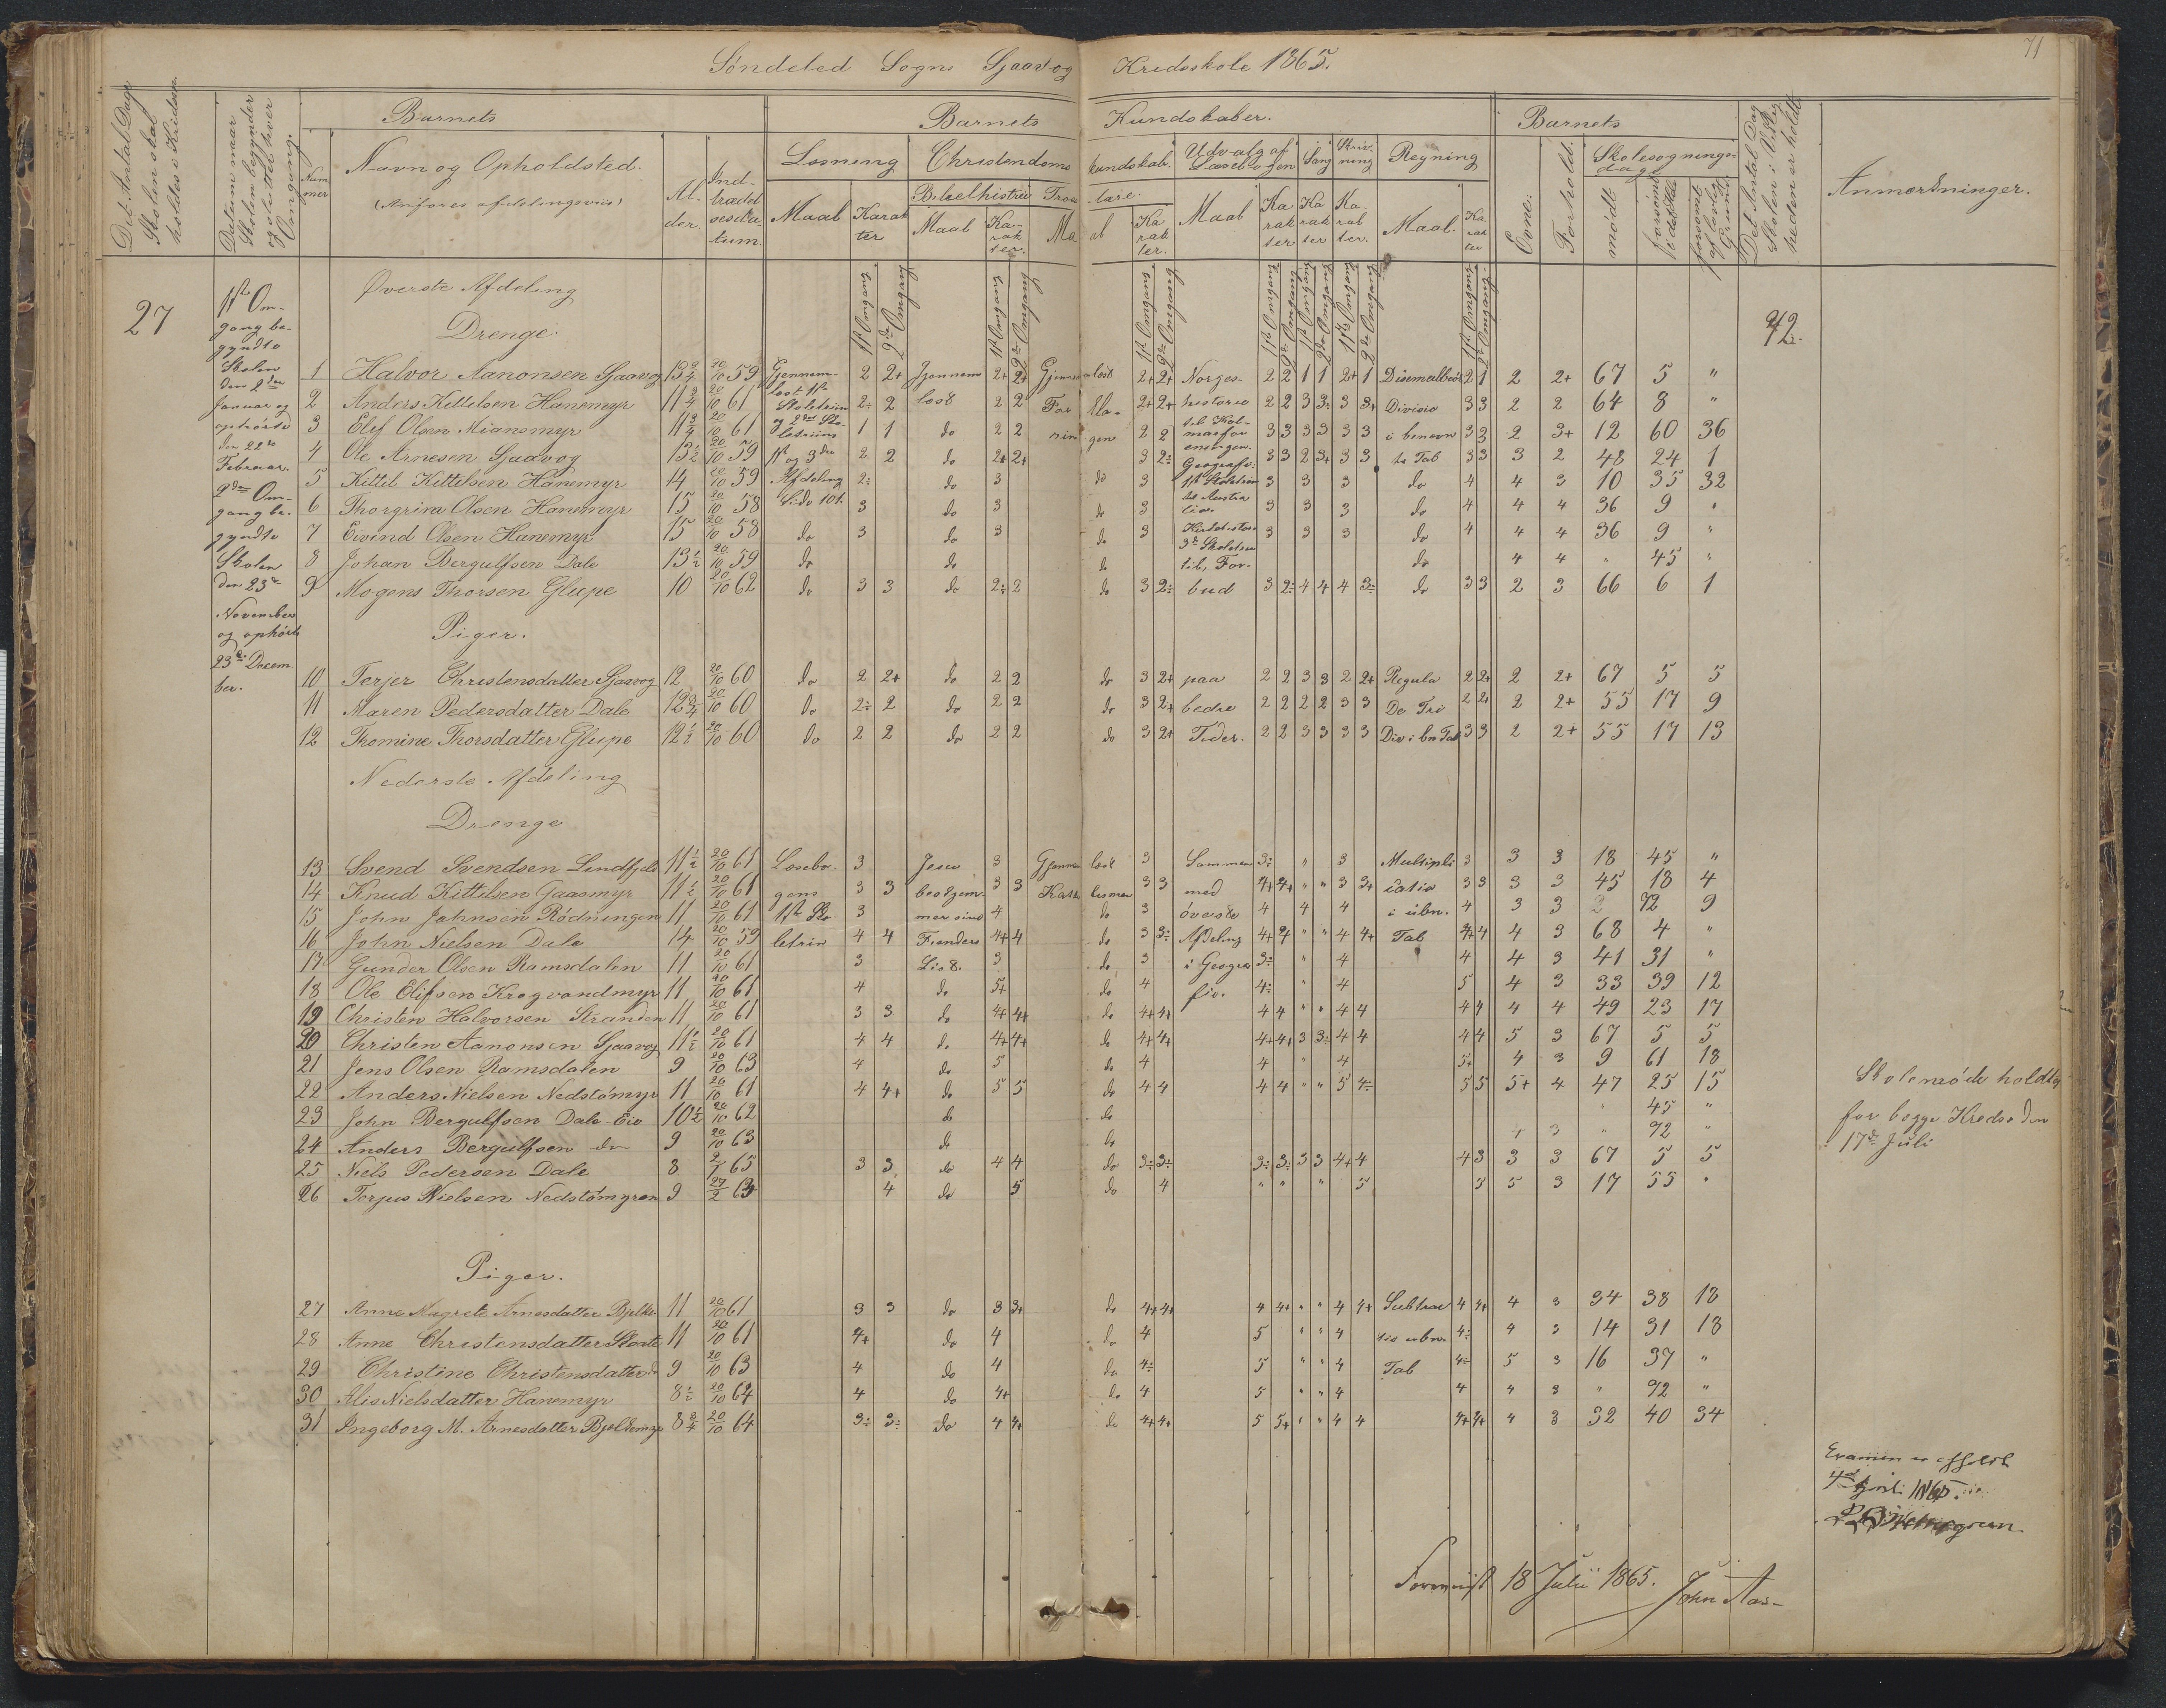 71
Søndeled Sogns Sjaavog Kredsskole 1865.
Det Antal Dage Skolen skal holdes i Kredsen.
Datum naar Skolen begynder og slutter hver Omgang.
Barnets
Barnets Kundskaber.
Barnets
Det Antal Dage Skolen i Virkeligheden er holdt.
Anmærkninger.
Nummer
Navn og Opholdsted.
(Anføres afdelingsviis)
Alder.
Indtrædelsesdatum.
Læsning
Christendomskundskab.
Udvalg af Læsebogen
Sang
Skrivning
Regning
Evne.
Forhold.
Skolesøgningsdage
Maal
Karakter
Bibelhistorie
Troeslære.
Maal
Karakter.
Maal
Karakter.
Maal
Karakter
Karakter
Karakter.
Maal.
Karakter
mødt
forsømt i det Hele
forsømt af lovlig Grund.
1ste Omgang. 2den Omgang
27
1ste Omgang begyndte Skolen den 2den Januar og ophørte den 22de Februar.
2den Omgang begyndte Skolen den 23de November og ophørte 23de December.
42.
Øverste Afdeling
Drenge.
1 Halvor Aanonsen Sjaavog 13 3/4 20/10 59 Gjennem- 2 2+ Gjennem 2+ 2+ Gjennemlæst 2+ 2+ Norges- 2 2 1 1 2+ 1 Disemalbrøk 2 1 2 2+ 67 5 "
2 Anders Kittelsen Hanemyr 11 3/4 20/10 61 læst 1ste Skoletrin 2÷ 2 læst 2 2 For Kla- 2+ 2+ historie 2 2 3 3÷ 3 3+ Divisio 3 3 2 2 64 8 "
3 Elef Olsen Miansmyr 11 3/4 20/10 61 og 2det Skoletriin 1 1 do 2 2 ringen 2 2 til Kalmarforeningen. 3 3 3 3 3 3 i benevn 3 3 2 3+ 12 60 36
4 Ole Arnesen Sjaavog 13 1/2 20/10 59 1st og 3die 2 2 do 2+ 2+ 3 2÷ Geografi: 3 3 2 3+ 3 3 te Tab 3 3 3 2 48 24 1
5 Kittil Kittelsen Hanemyr 14 20/10 59 Afdeling 2÷ do 3 do 3 1ste Skoletrin 3 3 3 do 4 4 3 10 35 32
6 Thorgrim Olsen Hanemyr 15 20/10 58 Side 101. 3 do 3 do 3 til Australien. 3 3 3 do 4 4 4 36 9 "
7 Eivind Olsen Hanemyr 15 20/10 58 do 3 do 3 do 3 Kirkehistorie 3 3 3 do 4 4 4 36 9 "
8 Johan Bergulfsen Dale 13 1/2 20/10 59 do do do 3die Skoletrin til, For- do 4 4 " 45 "
9 Mogens Thorsen Glupe 10 20/10 62 do 3 3 do 2÷ 2 do 3 2÷ bud 3 2÷ 4 4 4 3÷ do 3 3 2 3 66 6 1
Piger.
10 Terjer Christensdatter Sjaavog 12 20/10 60 do 2 2+ do 2 2 do 3 2+ paa 2 2 3 3 2 2+ Regula 2 2+ 2 2+ 67 5 5
11 Maren Pedersdatter Dale 12 3/4 20/10 60 do 2÷ 2 do 2 2 do 3 2+ bedre 2 2 2 2 3 3 De Tri 2 2+ 2 2+ 55 17 9
12 Thomine Thorsdatter Glupe 12 1/2 20/10 60 do 2 2 do 2 2 do 3 2+ Tider. 2 2 3 3 3 3 Div i bn Tab 3 3 2 2+ 55 17 13
Nederste Afdeling
Drenge
13 Svend Svendsen Lindfjeld 11 1/2 20/10 61 Læsebo- 3 Jesu 3 Gjennemlæst 3 Sammen 3÷ " 3 Multipli 3 3 3 18 45 "
14 Knud Kittelsen Gaasmyr 11 1/2 20/10 61 gens 3 3 bestjem- 3 3 Katekismen 3 3 med 4+ 4+ " " 3 3+ catio 3 3 3 3 45 18 4
15 John Johnsen Rødningen 11 20/10 61 1ste Sko- 3 mer sine 4 do 3 øverste 4 4 4 i ubn. 4 3 3 2 72 9
16 John Nielsen Dale 14 20/10 59 letrin 4 4 Fienders 4+ 4 do 3 3÷ Afdeling 4+ 4 " " 4 4+ Tab 4+ 4 4 3 68 4 "
17 Gunder Olsen Ramsdalen 11 20/10 61 3 List. 3 do 3 i Geogra 3÷ " 4 4 4 3 41 31 "
18 Ole Elifsen Krogvandmyr 11 20/10 61 4 do 5+ do 4 fie. 4÷ " 4 5 4 3 33 39 12
19 Christen Halvorsen Stranden 11 20/10 61 3 3 do 4+ 4+ do 4+ 4+ 4 4 " " 4 4 4 4 4 4 49 23 17
20 Christen Aanonsen Sjaavog 11 1/2 20/10 61 4 4 do 4+ 4+ do 4+ 4+ 4+ 4+ 3 3÷ 4 4 4 4 5 3 67 5 5
21 Jens Olsen Ramsdalen 9 20/10 63 4 do 5 do 4 4 " 4 5+ 4 3 9 61 18
22 Anders Nielsen Nedstømyr 11 20/10 61 4 4+ do 5 5 do 4 4 4 4 " " 5 4÷ 5 5 5+ 4 47 25 15
23 John Bergulfsen Dale Eie 10 1/2 20/10 62 do do " 45 "
24 Anders Bergulfsen do 9 20/10 63 do do 4 3 " 72 "
25 Niels Pedersen Dale 8 2/1 65 3 3 do 4 4 do 3÷ 3÷ 3÷ 3÷ 3 3 4+ 4 4 3 3 3 67 5 5
26 Terjus Nielsen Nedstømyren 9 27/2 63 4 do 5 do 4 " " " 5 5 5 3 17 55 "
Skolemøde holdtes
for begge Kredse den
17de Juli
Piger.
27 Anne Magrete Arnesdatter Bjelke- 11 20/10 61 3 3 do 3 3+ do 4+ 4+ 4 4+ " " 4 4+ Subtrac 4 4+ 4 3 34 38 18
28 Anne Christensdatter 11 20/10 61 4+ do 4 do 4 5 " " 4 tio ubn. 4÷ 4 3 14 31 18
29 Christine Christensdatter do 9 20/10 63 4 do 4 do 4÷ 5 " " 4 Tab 4÷ 5 3 16 37 "
30 Alis Nielsdatter Hanemyr 8 1/2 20/10 64 4 do 4+ do 4 5 " " 4 4 4 3 " 72 "
31 Ingeborg M. Arnesdatter Bjelkemyr 8 3/4 20/10 64 3÷ 3÷ do 4 4+ do 4+ 4+ 5 5+ " " 4 4 4+ 4+ 4 3 32 40 34
Examen er afholdt
4de April 1865.
Forevist 18 Julii 1865. John Aas